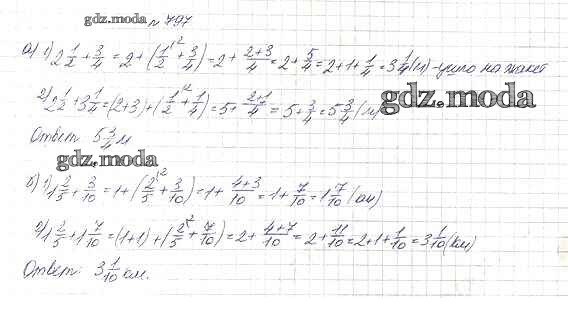 gdz.moda № 797
а) 1) 2 1/2 + 3/4 = 2 + (1/2 \2 + 3/4) = 2 + (2+3)/4 = 2 + 5/4 = 2 + 1 + 1/4 = 3 1/4 (м) - ушло на жакет
2) 2 1/2 + 3 1/4 = (2+3) + (1/2 \2 + 1/4) = 5 + (2+1)/4 = 5 + 3/4 = 5 3/4 (м)
gdz.moda
Ответ 5 3/4 м
gdz.moda
б) 1) 1 2/5 + 3/10 = 1 + (2/5 \2 + 3/10) = 1 + (4+3)/10 = 1 + 7/10 = 1 7/10 (км)
2) 1 2/5 + 1 7/10 = (1+1) + (2/5 \2 + 7/10) = 2 + (4+7)/10 = 2 + 11/10 = 2 + 1 + 1/10 = 3 1/10 (км)
Ответ: 3 1/10 км.